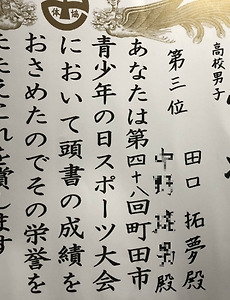 高校男子
第三位
田口 拓夢殿
殿
あなたは第四十八回町田市
青少年の日スポーツ大会
において頭書の成績を
おさめたのでその栄誉を
たたえこれを賞します